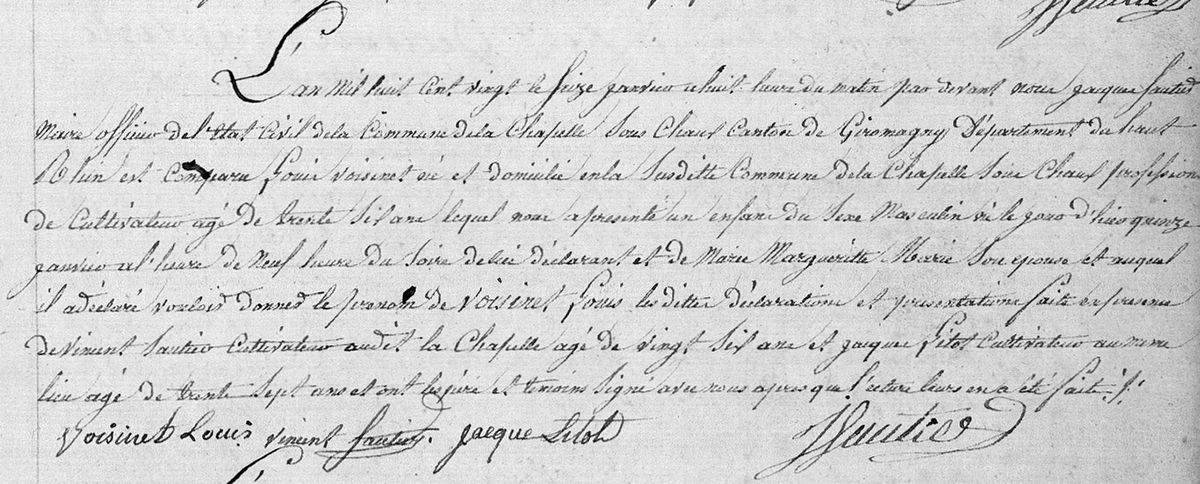 L'an Mil huit Cent vingt le seize janvier a huit heure du matin par devant nous jacque Sautier
Maire officier de l'état Civil de la Commune de la Chapelle Sous Chaux Canton de Giromagny Département du haut
Rhin est Comparu Louis Voisinet né et domicilié en la Susditte Commune de la Chapelle Sous Chaux profession
de Cultivateur agé de trente Six ans lequel nous a presenté un enfant du Sexe Masculin né le jour d'hier quinze
janvier a l'heure de Neuf heure du Soire de lui déclarant et de Marie Margueritte Marie Son epouse et auquel
il a déclaré vouloir donner le prenom de Voisinet Louis les ditte déclarations et presentations faite en presence
de Vincent Sautier Cultivateur audit la Chapelle agé de vingt Six ans et jacque Litot Cultivateur au meme
lieu agé de trente Sept ans et ont les père et temoins Signé avec nous apres que lecture leurs en a été faite
Voisinet Louis vincent Sautier jacque Litot JSautier